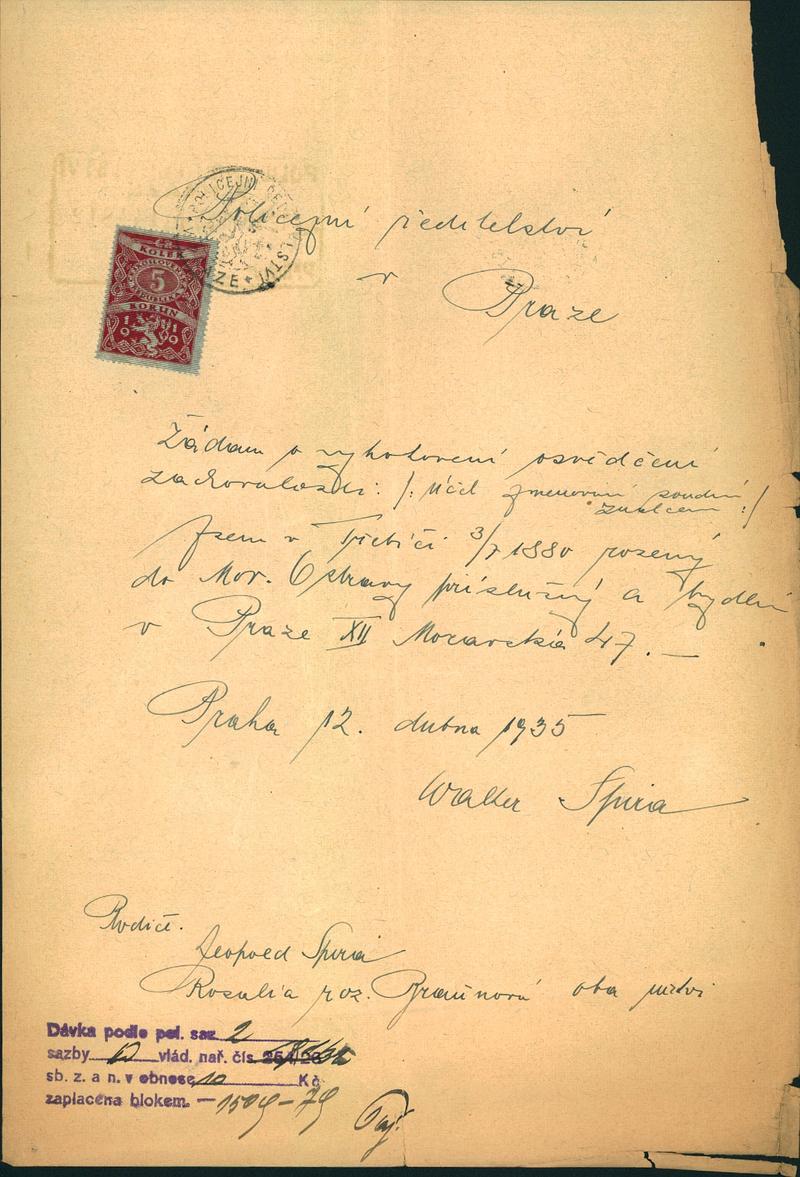 Policejní ředitelství
v
Praze
POLICEJNÍ ŘEDITELSTVÍ
KOLEK
5
KORUN
1919
Žádám o vyhotovení osvědčení
zachovalosti. /: účel jmenování soudním
znalcem :/
Jsem v Třebíči 3/7 1880 rozený
do Mor. Ostravy příslušný a bydlím
v Praze XII Moravská 47. —
Praha 12. dubna 1935
Walter Spira
Rodiče.
Leopold Spira
Rosalia roz. Braunová oba mrtvi
Dávka podle pol. saz. 2
sazby D vlád. nař. čís.
sb. z. a n. v obnose 10 Kč
zaplacena blokem. — 1509-79